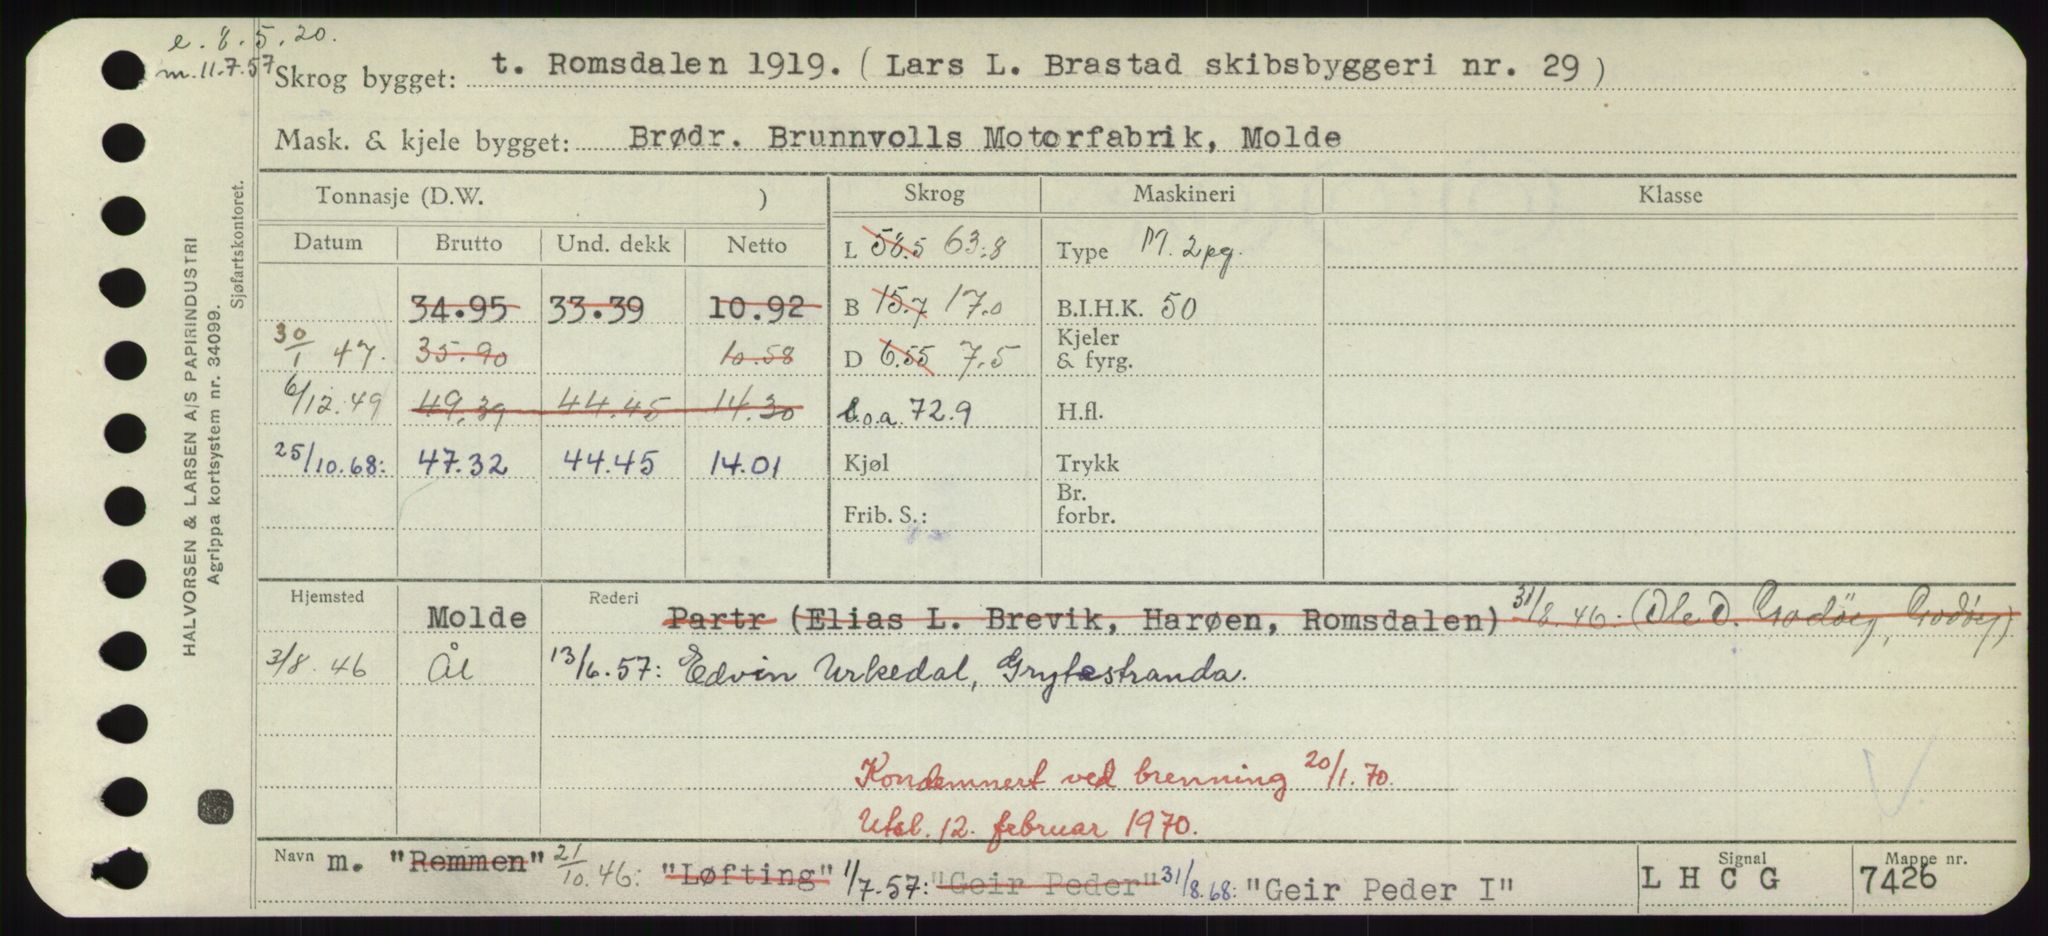 e. 8.5.20.
m. 11.7.57
Skrog bygget: t. Romsdalen 1919. (Lars L. Brastad skibsbyggeri nr. 29)
Mask. & kjele bygget: Brødr. Brunnvolls Motorfabrik, Molde
Tonnasje (D.W. ) Skrog Maskineri Klasse
Datum Brutto Und. dekk Netto
L 58.5 63.8 Type M. 2pg.
34.95 33.39 10.92 B 15.7 17.0 B.I.H.K. 50
30/1 47. 35.90 10.58 D 6.55 7.5 Kjeler & fyrg.
6/12.49 49.39 44.45 14.30 l.o.a. 72.9 H.fl.
25/10.68: 47.32 44.45 14.01 Kjøl Trykk
Frib. S.: Br. forbr.
Hjemsted Molde Rederi Partr (Elias L. Brevik, Harøen, Romsdalen) 31/8.46. (Ole O. Godöy, Godöy)
3/8.46 Ål 13/6.57: Edvin Urkedal, Grytestranda.
Kondemnert ved brenning 20/1.70.
Utsl. 12. februar 1970.
Navn m. "Remmen" 21/10.46: "Løfting" 1/7.57: "Geir Peder" 31/8.68: "Geir Peder I" Signal L H C G Mappe nr. 7426
HALVORSEN & LARSEN A/S PAPIRINDUSTRI
Agrippa kortsystem nr. 34099.
Sjøfartskontoret.